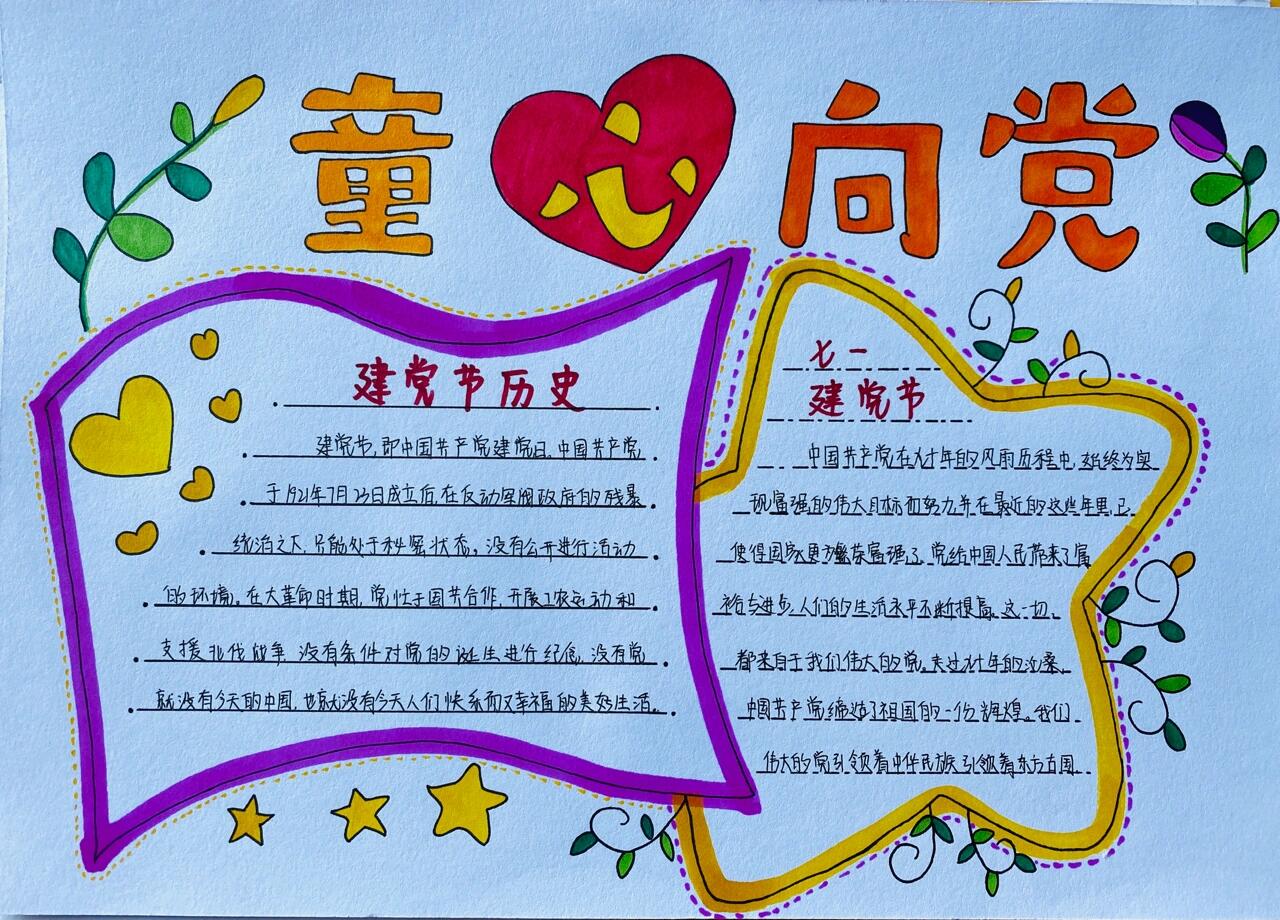 童心向党
建党节历史
建党节,即中国共产党建党日。中国共产党
于1921年7月23日成立后,在反动军阀政府的残暴
统治之下,只能处于秘密状态,没有公开进行活动
的环境。在大革命时期,党忙于国共合作,开展工农运动和
支援北伐战争,没有条件对党的诞生进行纪念,没有党
就没有今天的中国,也就没有今天人们快乐而又幸福的美好生活。
七一
建党节
中国共产党在九十年的风雨历程中,始终为实
现富强的伟大目标而努力并在最近的这些年里,已
使得国家更为繁荣富强了,党给中国人民带来了富
裕与进步,人们的生活水平不断提高。这一切,
都来自于我们伟大的党。走过九十年的沧桑,
中国共产党缔造了祖国的一份辉煌。我们
伟大的党引领着中华民族,引领着东方古国